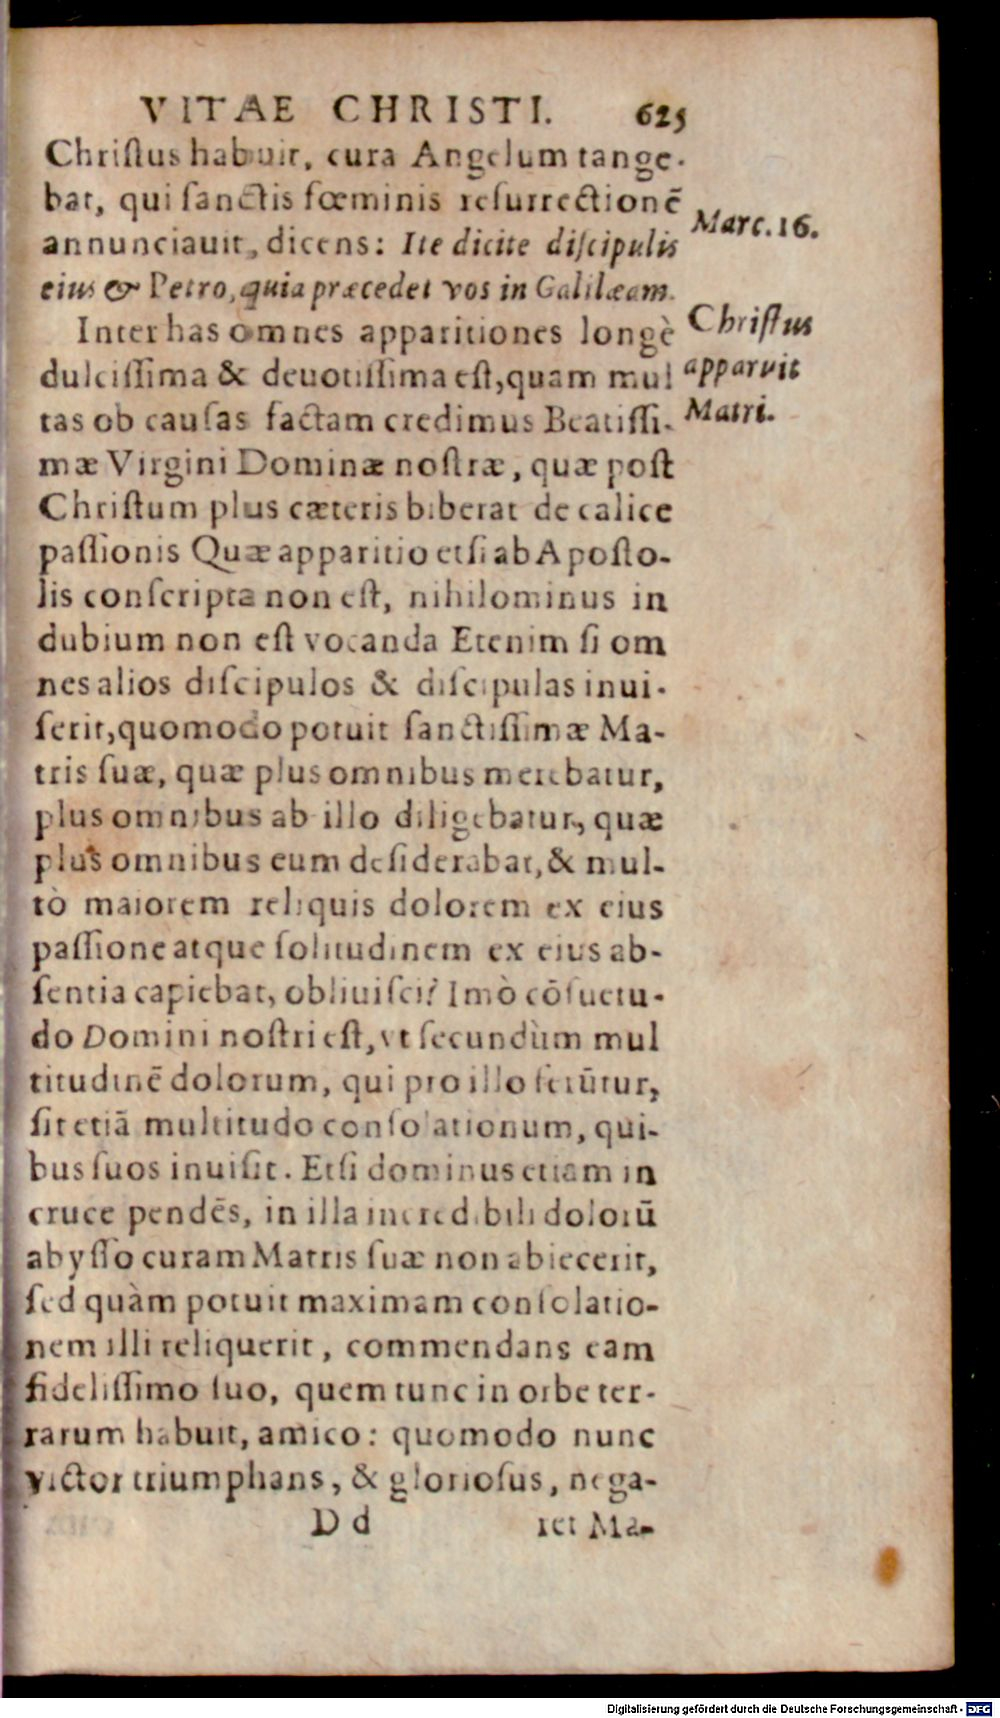 VITAE CHRISTI. 625
Chriſtus habuit, cura Angelum tange-
bat, qui ſanctis fœminis reſurrectionē
annunciauit, dicens: Ite dicite diſcipulis
eius & Petro, quia præcedet vos in Galilæam.
Marc. 16.
Inter has omnes apparitiones longè
dulciſſima & deuotiſſima eſt, quam mul
tas ob cauſas factam credimus Beatiſſi-
Chriſtus
apparvit
Matri.
mæ Virgini Dominæ noſtræ, quæ poſt
Chriſtum plus cæteris biberat de calice
paſſionis Quæ apparitio etſi ab Apoſto-
lis conſcripta non eſt, nihilominus in
dubium non eſt vocanda Etenim ſi om
nes alios diſcipulos & diſcipulas inui-
ſerit, quomodo potuit ſanctiſſimæ Ma-
tris ſuæ, quæ plus omnibus merebatur,
plus omnibus ab illo diligebatur, quæ
plus omnibus eum deſiderabat, & mul-
tò maiorem reliquis dolorem ex eius
paſſione atque ſolitudinem ex eius ab-
ſentia capiebat, obliuiſci? Imò cōſuetu-
do Domini noſtri eſt, vt ſecundùm mul
titudinē dolorum, qui pro illo ferūtur,
ſit etiā multitudo conſolationum, qui-
bus ſuos inuiſit. Etſi dominus etiam in
cruce pendēs, in illa incredibili dolorū
abyſſo curam Matris ſuæ non abiecerit,
ſed quàm potuit maximam conſolatio-
nem illi reliquerit, commendans eam
fideliſſimo ſuo, quem tunc in orbe ter-
rarum habuit, amico: quomodo nunc
victor triumphans, & glorioſus, nega-
D d
ret Ma-
Digitalisierung gefördert durch die Deutsche Forschungsgemeinschaft - DFG